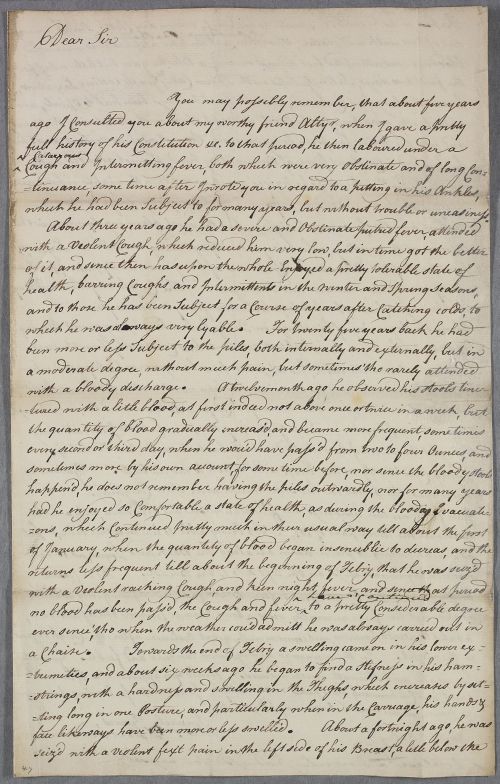 Dear Sir
You may possibly remember, that about five years
ago I Consulted you about my worthy friend Altyr, when I gave a pretty
full history of his Constitution &c. to that period, he then laboured under a
Catarrous
Cough and Intermitting fever, both which were very Obstinate and of long Con-
-tinuance some time after I wrote you in regard to a pitting in his Ankles,
which he had been Subject to for many years, but without trouble or uneasiness
About three years ago he had a severe and Obstinate putrid fever, attended
with a Violent Cough, which reduced him very low, but in time got the better
of it, and since then has upon the whole Enjoyed a pretty tolerable state of
health, barring Coughs and Intermittents in the Winter and Spring Seasons,
and to those he has been Subject for a Course of years after Catching colds, to
which he was always very lyable. For twenty five years back he had
been more or less Subject to the piles, both internally and externally, but in
a moderate degree, without much pain, but sometimes tho rarely attended
with a bloody discharge. A twelvemonth ago he observed his stools tinc-
-tured with a litle blood, at first indeed not above once or twice in a week, but
the quantity of blood gradually increas'd, and became more frequent, some times
every second or third day, when he wou'd have pass'd from two to four Ounces, and
sometimes more by his own account, for some time before, nor since the bloody stools
happend, he does not remember having the piles outwardly, nor for many years
had he enjoyed so Comfortable a state of health, as during the bloody evacuati-
-ons, which Continued pretty much in their usual way till about the first
of January, when the quantity of blood began insensible to decreas, and the
returns less frequent till about the beginning of Febry, that he was seiz'd
with a Violent racking Cough and keen night fever, and since that period
no blood has been pass'd, the Cough and fever to a pretty Considerable degree
ever since tho when the weather cou'd admitt he was always carried out in
a Chaise. Towards the end of Febry a swelling came on in his lower ex-
-tremities, and about six weeks ago he began to find a stifness in his ham-
-strings, with a hardness and swelling in the Thighs which encreases by sit-
-ting long in one Posture, and particularly when in the Carriage, his hands &
face likeways have been more or less swelled. About a fortnight ago, he was
seiz'd with a violent fixt pain in the left side of his Breast, a litle below the